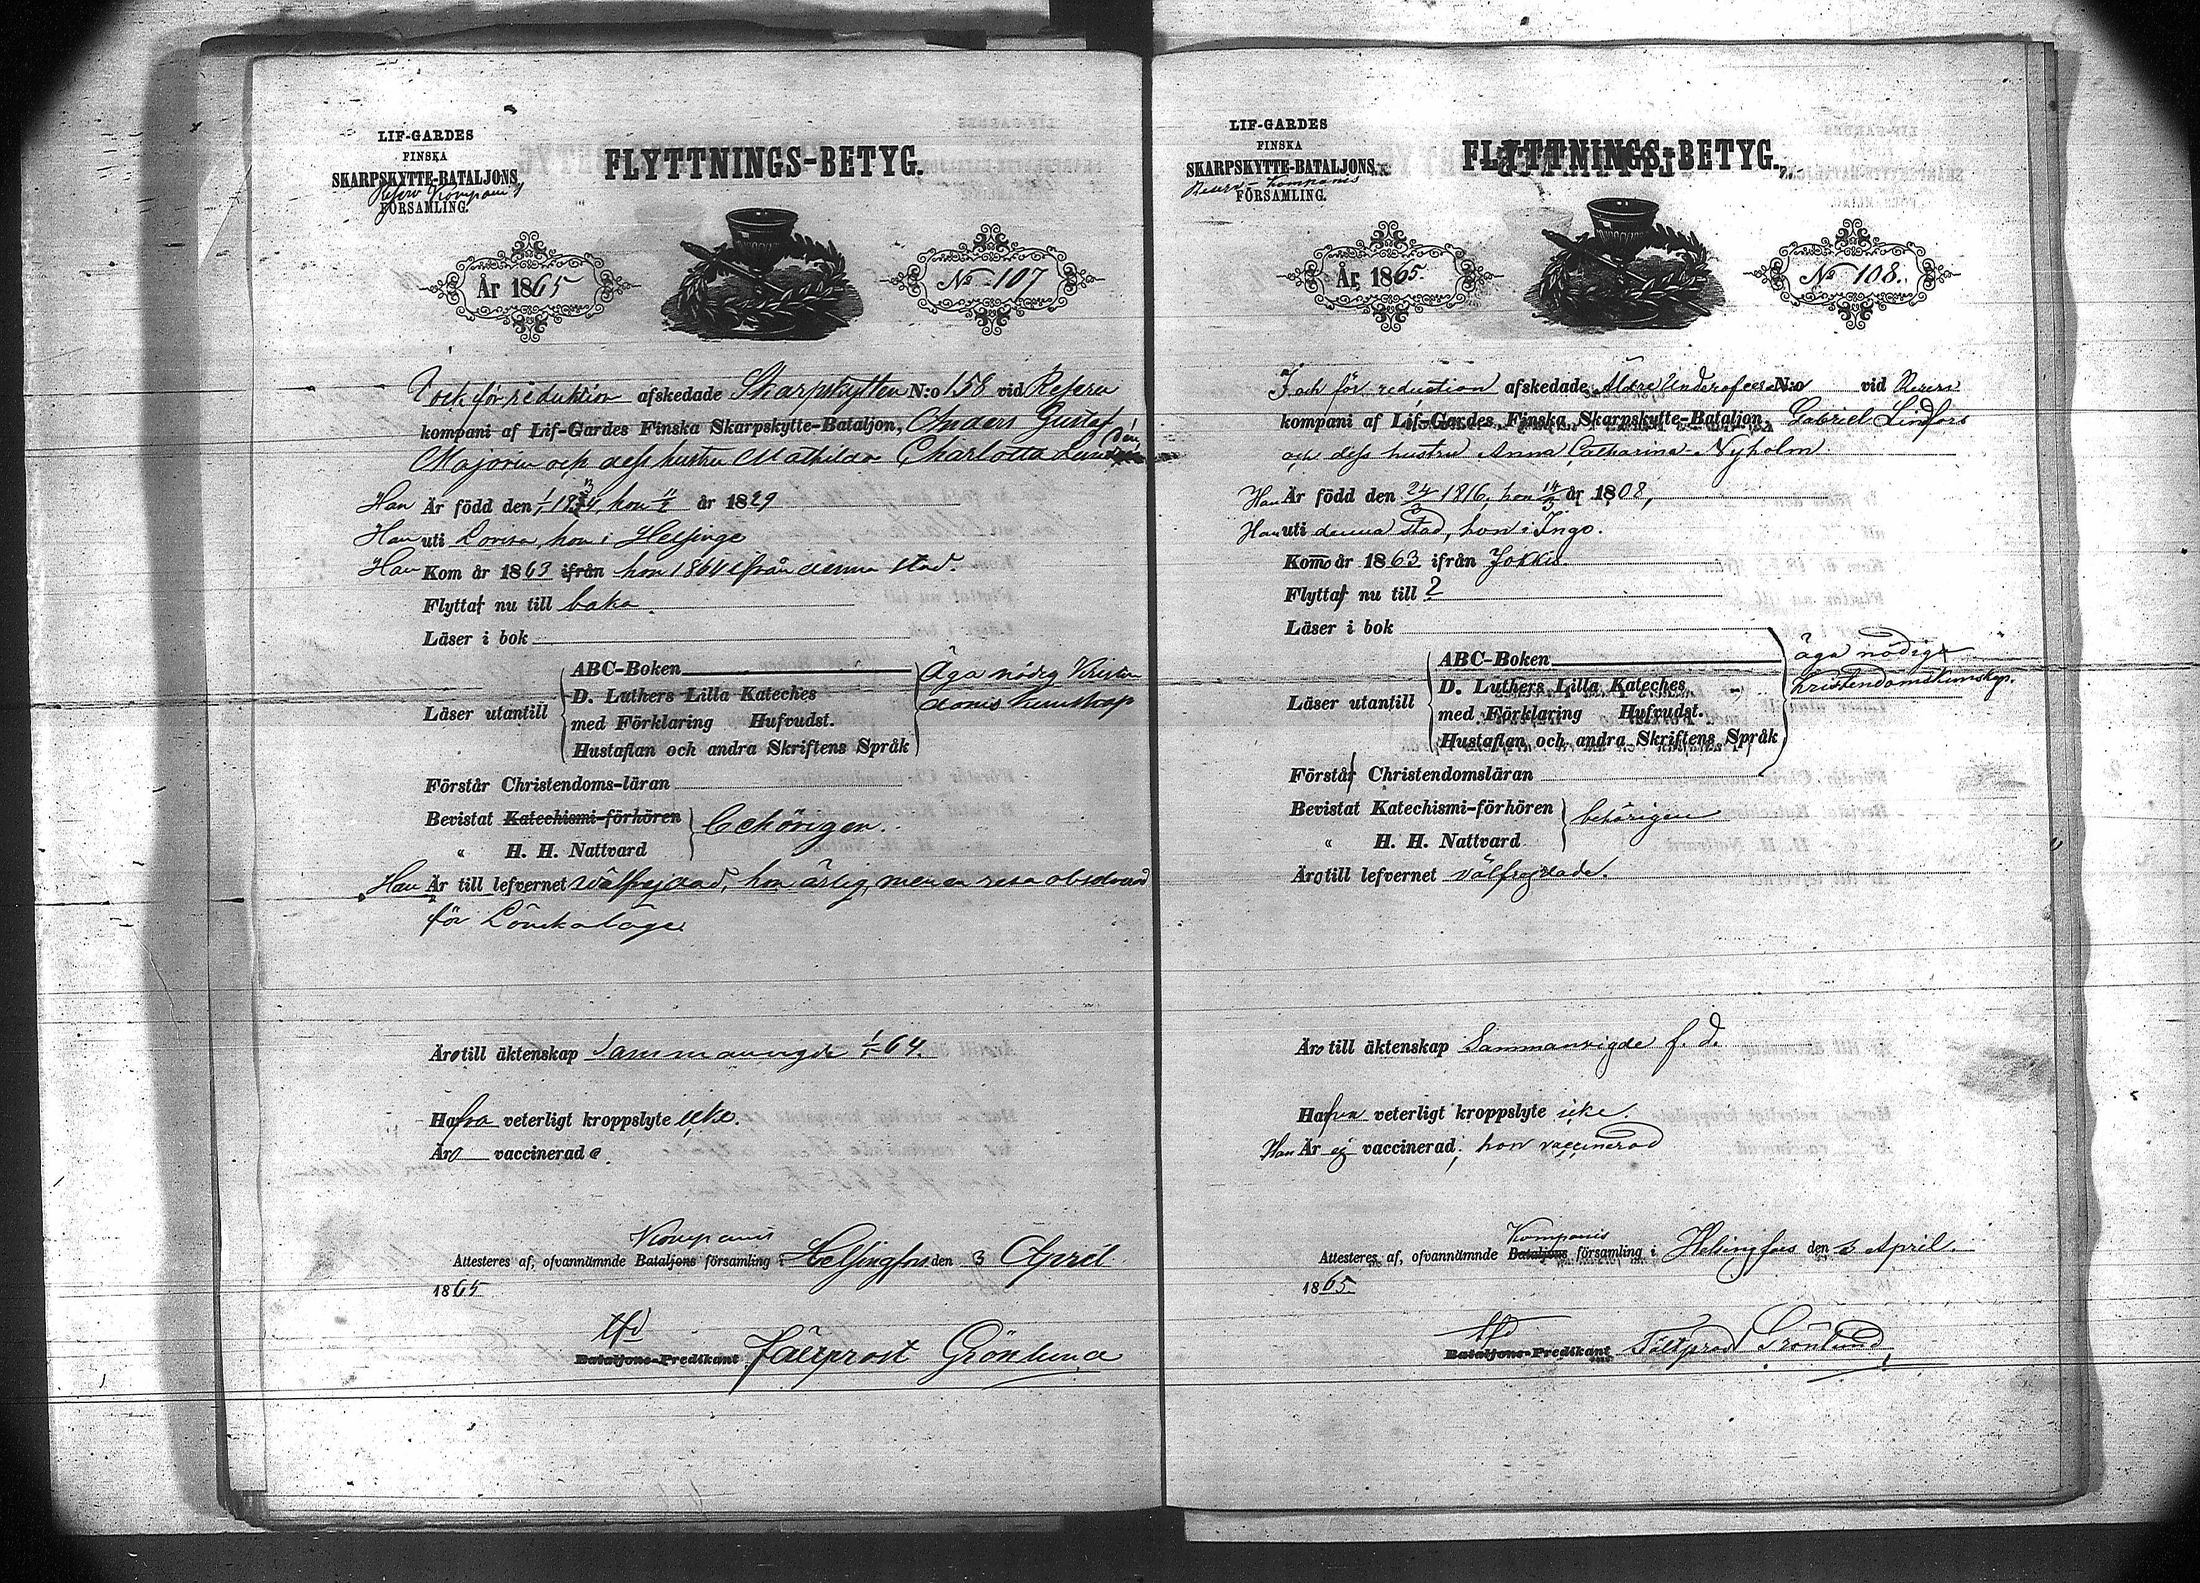 LIF-GARDES
FINSKA
SKARPSKYTTE-BATALJONS
Reserv Kompani
FÖRSAMLING.
FLYTTNINGS-BETYG.
År 1865
No 107
I och för reduktion afskedade Skarpskytten N:o 158 vid Reserv
kompani af Lif-Gardes Finska Skarpskytte-Bataljon, Anders Gustaf
Majorin och dess hustru Mathilda Charlotta
Han Är född den hon år 1829
Han uti Lovisa, hon i Helsinge
Han Kom år 1863 ifrån hon 1864 ifrån denna stad.
Flytta nu till baka
Läser i bok
Läser utantill
ABC-Boken
D. Luthers Lilla Kateches
med Förklaring Hufvudst.
Hustaflan och andra Skriftens Språk
Äga nödig Kristen
doms kunskap
Förstår Christendoms-läran
Bevistat Katechismi-förhören
" H. H. Nattvard
behörigen.
Han Är till lefvernet välfrejdad, hon ärlig, men en resa
för Lönskaläge.
Äro till äktenskap Sammanvigde 64.
Hafva veterligt kroppslyte icke.
Äro vaccinerade.
Kompanis
Attesteres af, ofvannämnde Bataljons församling i Helsingfors den 3 April
1865
tfd
Bataljons-Predikant Fältprost Grönlund
LIF-GARDES
FINSKA
SKARPSKYTTE-BATALJONS
Reserv-Kompanis
FÖRSAMLING.
FLYTTNINGS-BETYG.
År 1865.
No 108.
I och för reduction afskedade Äldre Underofficeren N:o vid Reserv
kompani af Lif-Gardes Finska Skarpskytte-Bataljon, Gabriel Lindfors
och dess hustru Anna Catharina Nyholm.
Han Är född den 24/3 1816, hon 14/3 år 1808,
Han uti denna stad, hon i Ingo.
Komo år 1863 ifrån Jokkis.
Flytta nu till ?
Läser i bok
Läser utantill
ABC-Boken
D. Luthers Lilla Kateches
med Förklaring Hufvudst.
Hustaflan och andra Skriftens Språk
äga nödige
kristendomskunskap.
Förstår Christendomsläran
Bevistat Katechismi-förhören
" H. H. Nattvard
behörigen
Äro till lefvernet välfrejdade.
Äro till äktenskap Sammanvigde f. d.
Hafva veterligt kroppslyte icke.
Han Är ej vaccinerad; hon vaccinerad
Kompanis
Attesteres af, ofvannämnde Bataljons församling i Helsingfors den 3 April.
1865.
tfd
Bataljons-Predikant Fältprost Grönlund